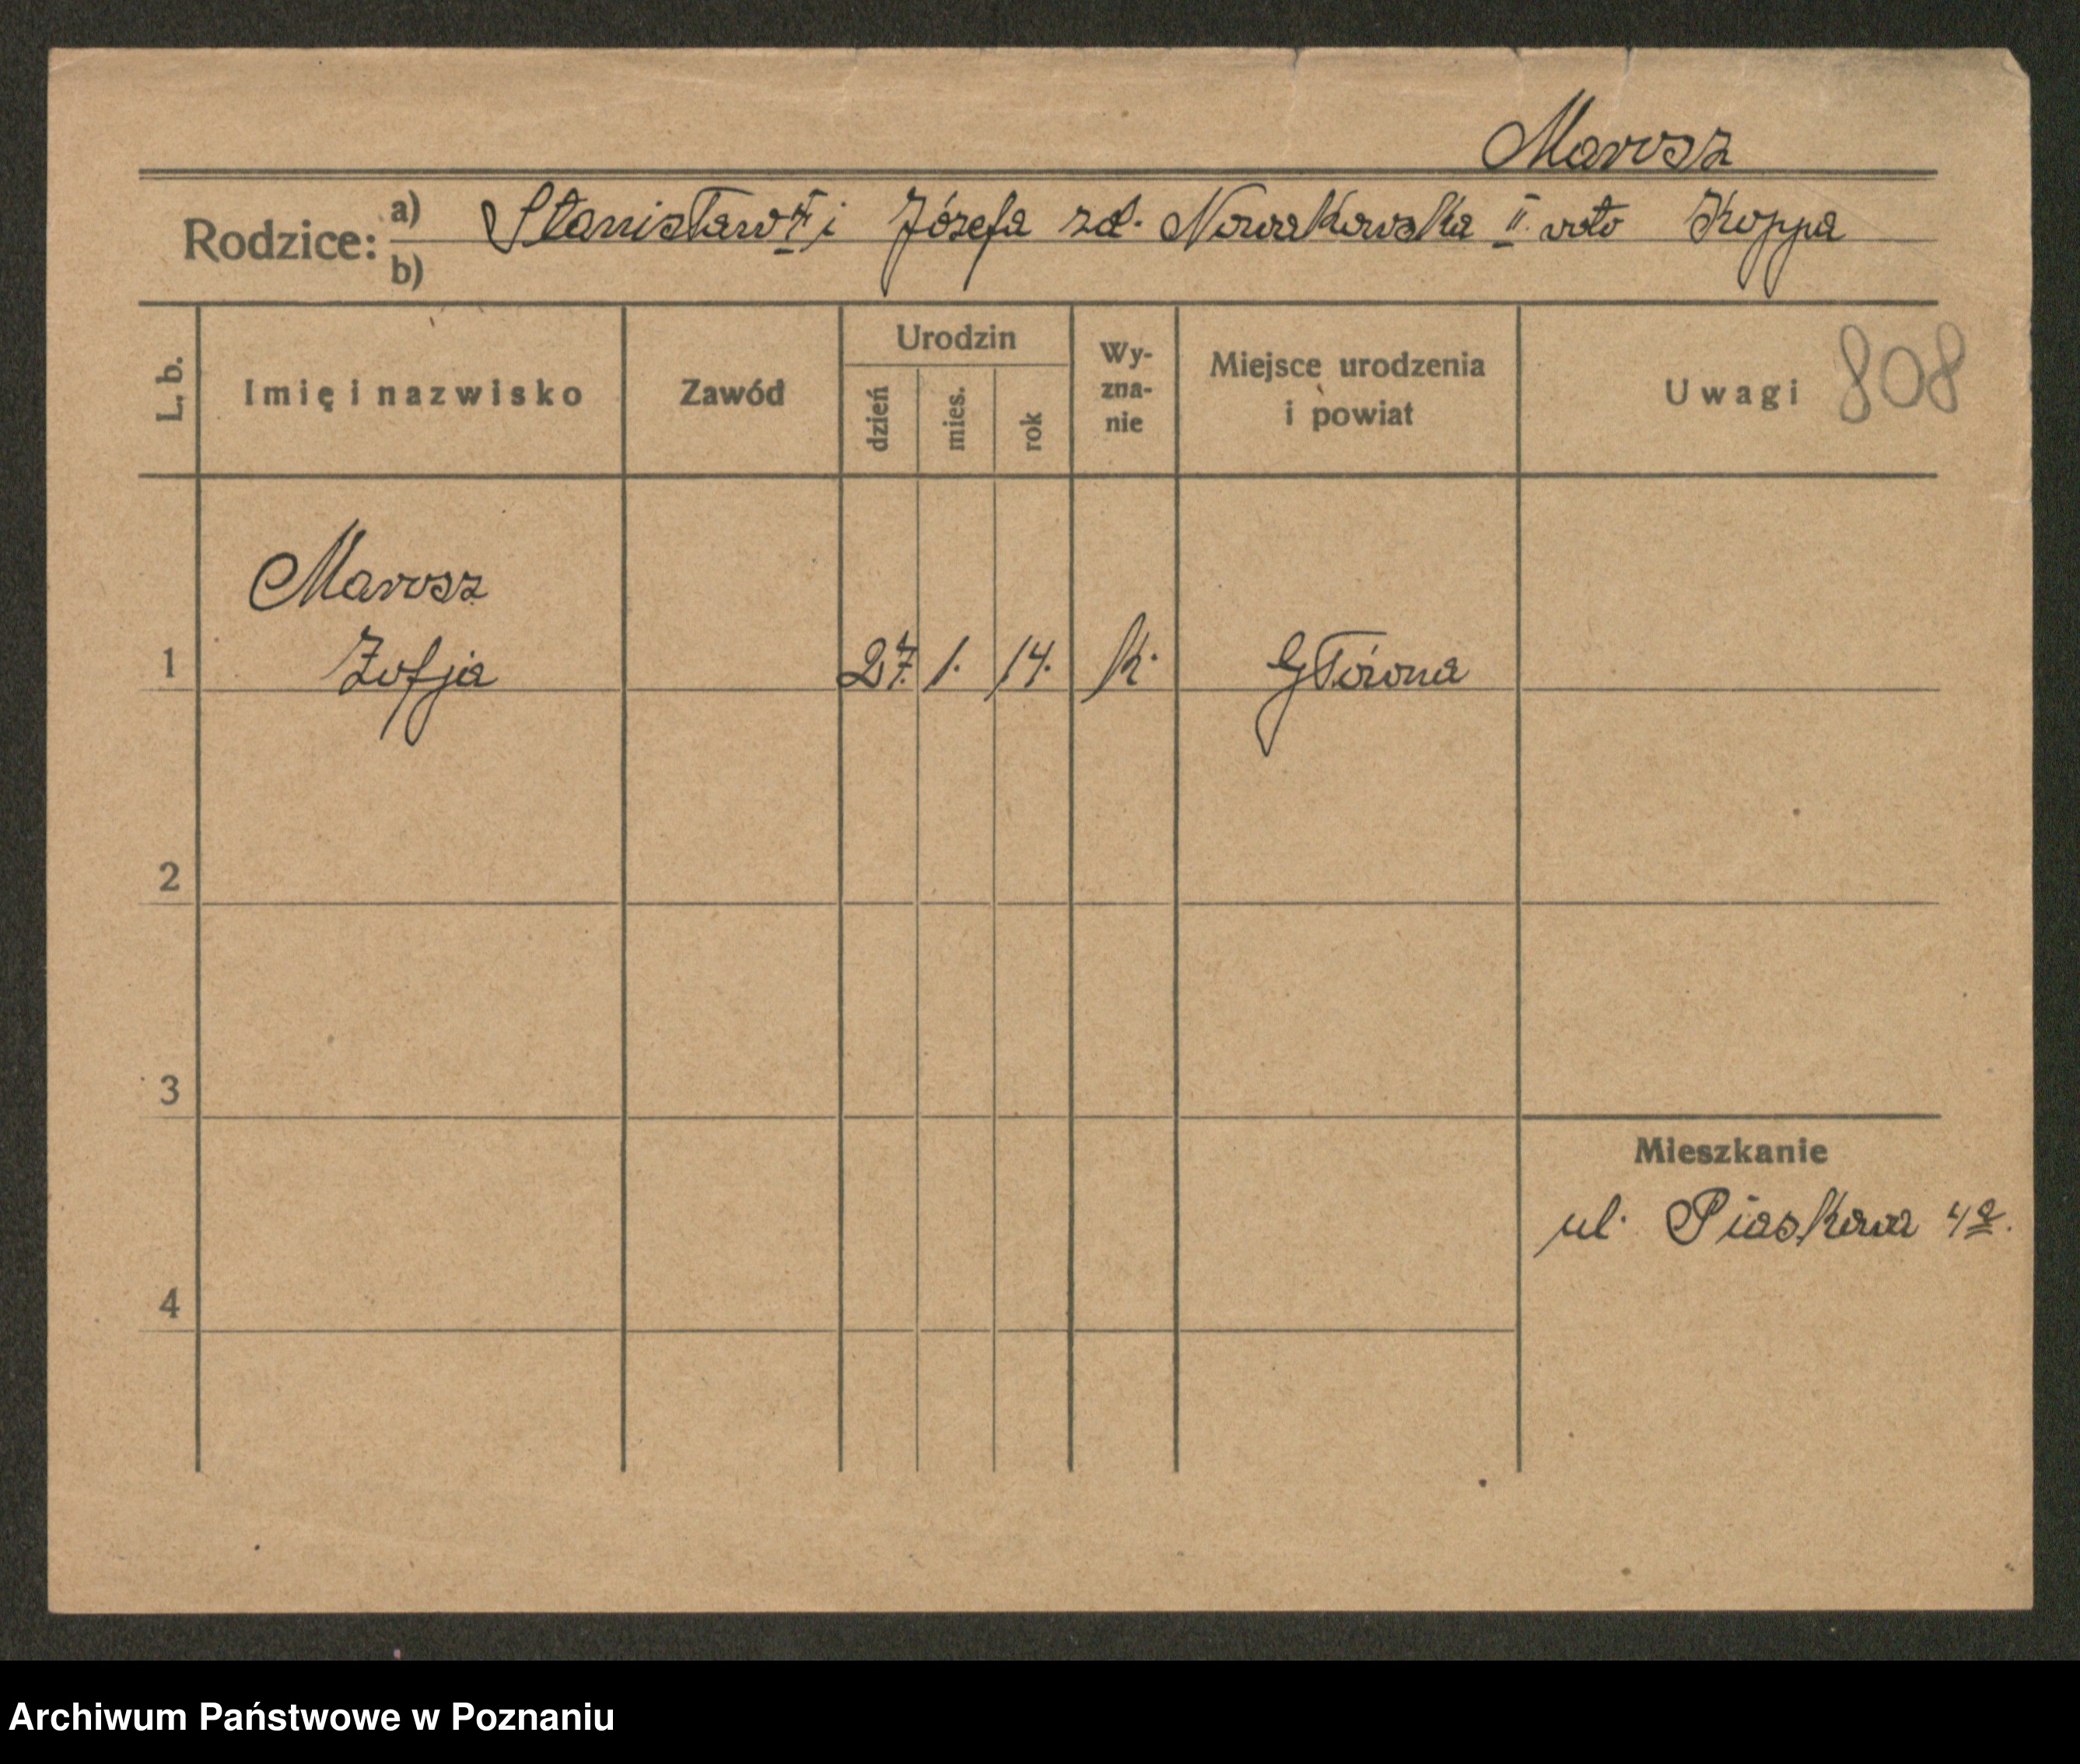 Marosz
Rodzice: a) Stanisław i Józefa zd. Nowakowska II voto Koppa
b)
L. b. Imię i nazwisko Zawód Urodzin dzień mies. rok Wy-zna-nie Miejsce urodzenia i powiat Uwagi 808
Marosz
1 Zofja 27. 1. 14. k. Główna
2
3
Mieszkanie
ul. Piaskowa 4a.
4
Archiwum Państwowe w Poznaniu